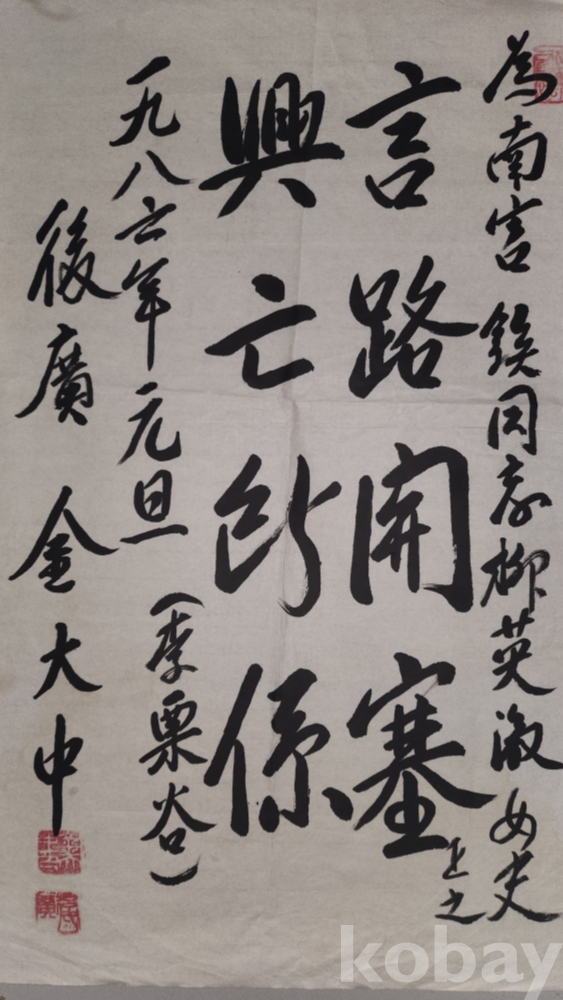 為南宮鎭同志柳英淑女史
正之
言路開塞
興亡所係
一九八六年元旦(李栗谷)
後廣 金大中
kobay